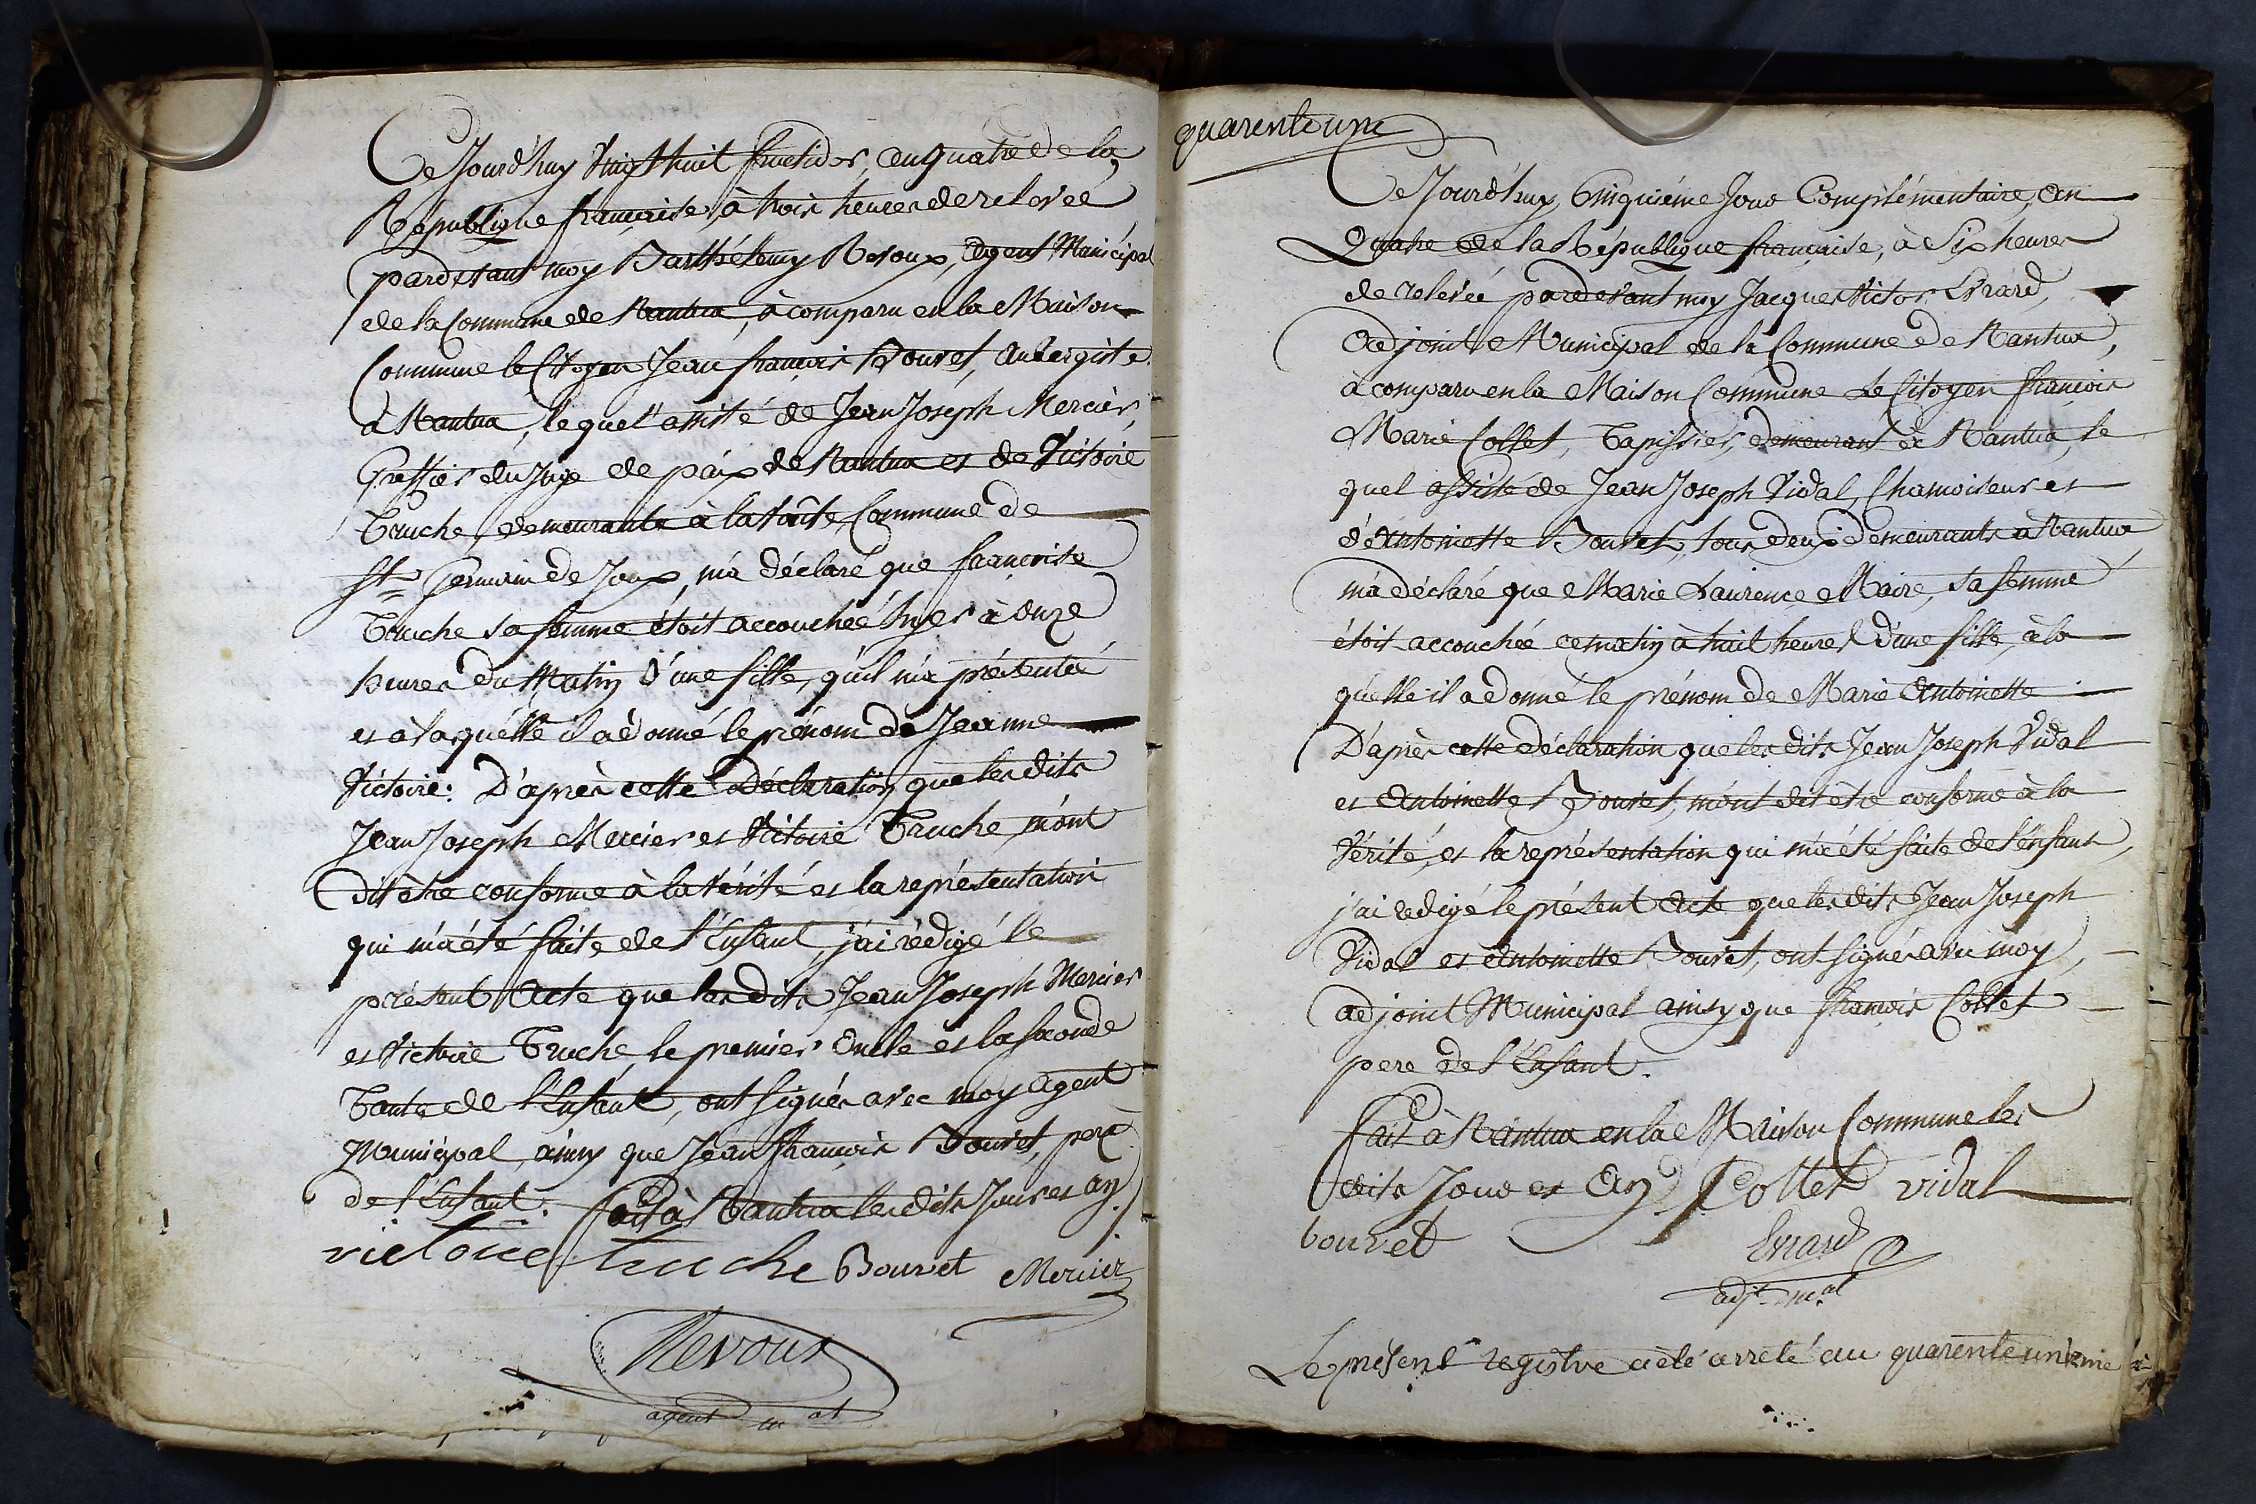 Ce Jourd'huy Vingt huit fructidor, an quatre de la
République française, à trois heures de relevée
pardevant moy Barthélemy Revoux, Agent Municipal
de la Commune de Nantua, à comparu en la Maison
Commune le Citoyen Jean françois Bouvet, Aubergiste
à Nantua, lequel assisté de Jean Joseph Mercier,
Greffier du Juge de paix de Nantua et de Victoire
Truche, demeurante à la Voûte, Commune de
St Germain de Joux, m'a déclaré que françoise
Truche sa femme étoit accouchée hyer à onze
heures du Matin d'une fille, qu'il m'a présenté
et à laquelle il a donné le prénom de Jeanne
Victoire. D'après cette déclaration que les dits
Jean Joseph Mercier et Victoire Truche, m'ont
dit être conforme à la Vérité et la représentation
qui m'a été faite de l'Enfant, j'ai rédigé le
présent Acte que les dits Jean Joseph Mercier
et Victoire Truche, le premier Oncle et la seconde
Tante de l'Enfant, ont signés avec moy Agent
Municipal, ainsy que Jean françois Bouvet, père
de l'Enfant. fait à Nantua les dits Jour et an
victoire truche Bouvet Mercier
Revoux
agent m.al
quarente une
Ce Jourd'huy Cinquième Jour Complémentaire, an
Quatre de la République française, à Six heures
de relevée pardevant moy Jacques Victor Evrard,
Adjoint Municipal de la Commune de Nantua,
à comparu en la Maison Commune Le Citoyen françois
Marie Collet, Tapissier, demeurant à Nantua, le
quel assisté de Jean Joseph Vidal, Chamoiseur et
d'Antoinette Bouvet, tous deux demeurants à Nantua
m'a déclaré que Marie Laurence Maire, sa femme
étoit accouchée ce matin à huit heures d'une fille, à la
quelle il a donné le prénom de Marie Antoinette
D'après cette déclaration que les dits Jean Joseph Vidal
et Antoinette Bouvet, m'ont dit être conforme à la
Vérité, et la représentation qui m'a été faite de l'enfant,
j'ai redigé le présent Acte que les dits Jean Joseph
Vidal et Antoinette Bouvet, ont signés avec moy,
adjoint Municipal ainsy que françois Collet
pere de l'Enfant.
fait à Nantua en la Maison Commune les
dits Jour et An Collet vidal
bouvet
Evrard
adjt m.al
Le présent registre a été arreté au quarente unième